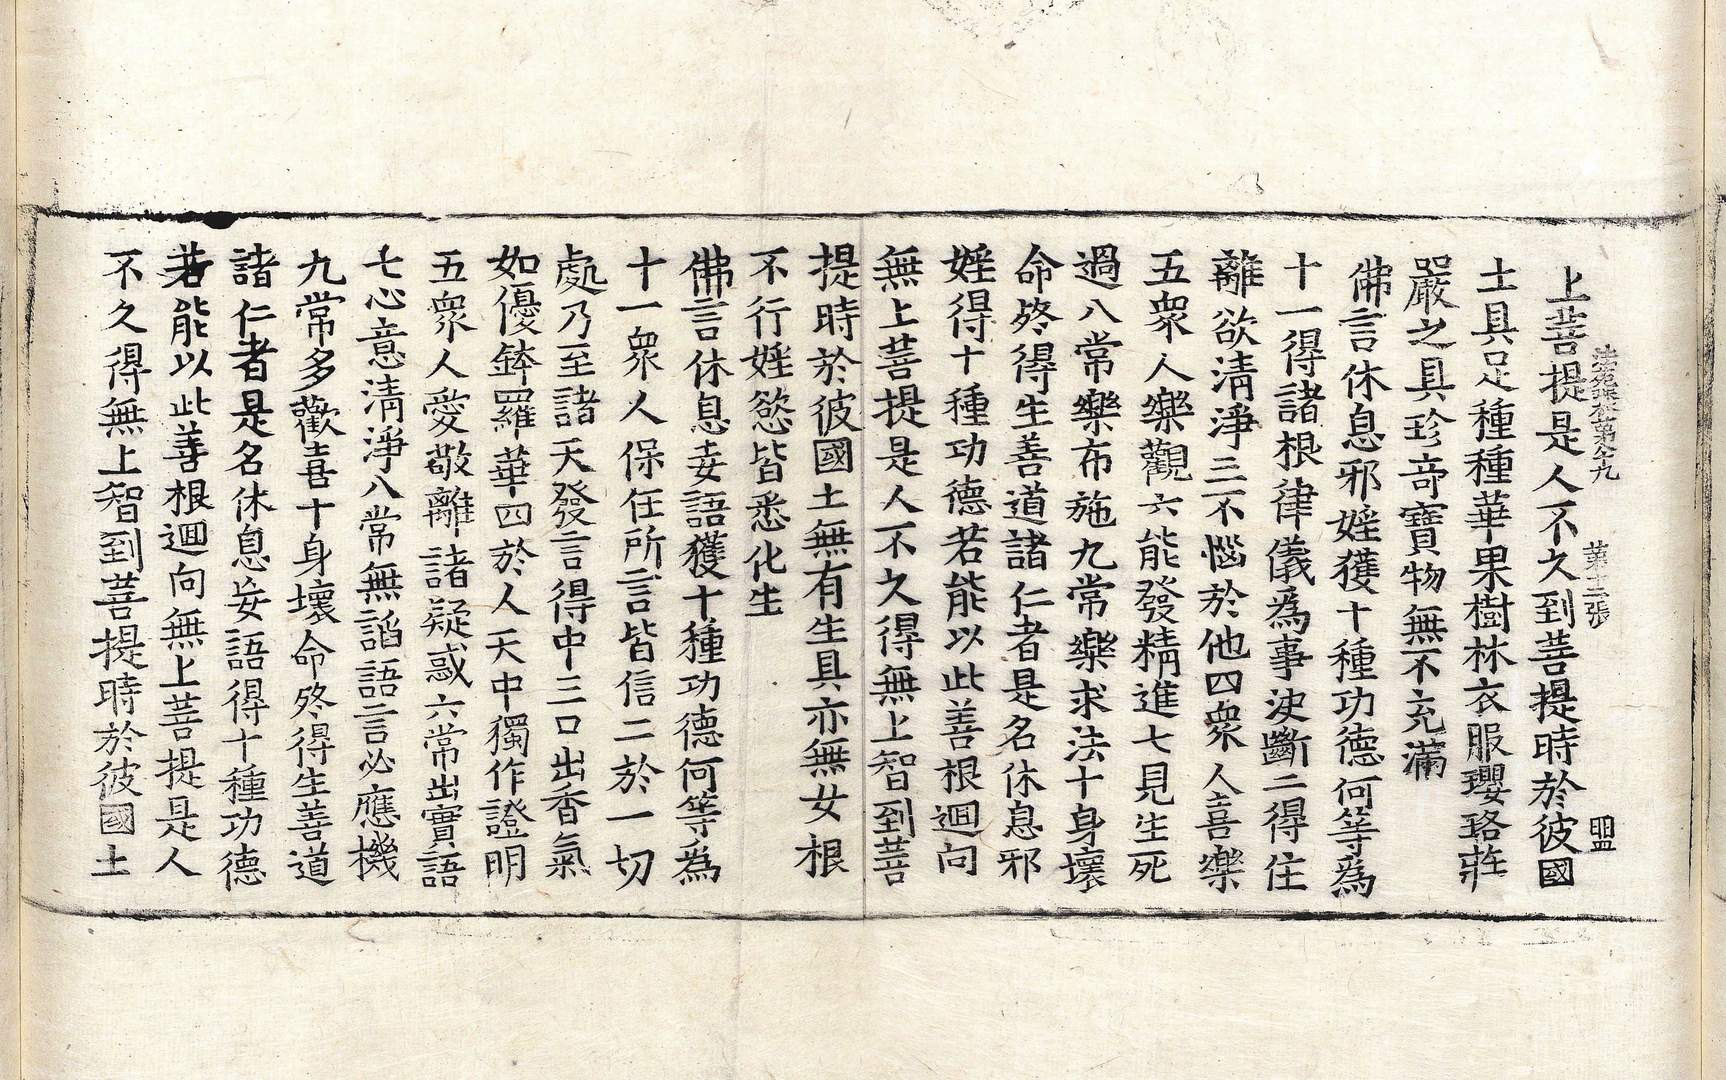 法苑珠林第八十九 第十二張 盟
上菩提是人不久到菩提時於彼國
士具足種種華果樹林衣服瓔珞莊
嚴之具珍竒寶物無不充滿
佛言休息邪婬獲十種功德何等為
十一得諸根律儀為事決斷二得住
離欲清淨三不惱於他四眾人喜樂
五眾人樂觀六能發精進七見生死
過八常樂布施九常樂求法十身壞
命終得生善道諸仁者是名休息邪
婬得十種功德若能以此善根迴向
無上菩提是人不久得無上智到菩
提時於彼國土無有生具亦無女根
不行婬慾皆悉化生
佛言休息妄語獲十種功德何等為
十一眾人保任所言皆信二於一切
處乃至諸天發言得中三口出香氣
如優鉢羅華四於人天中獨作證明
五眾人愛敬離諸疑惑六常出實語
七心意清淨八常無諂語言必應機
九常多歡喜十身壞命終得生善道
諸仁者是名休息妄語得十種功德
若能以此善根迴向無上菩提是人
不久得無上智到菩提時於彼國土